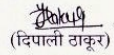 (दिपाली ठाकूर)